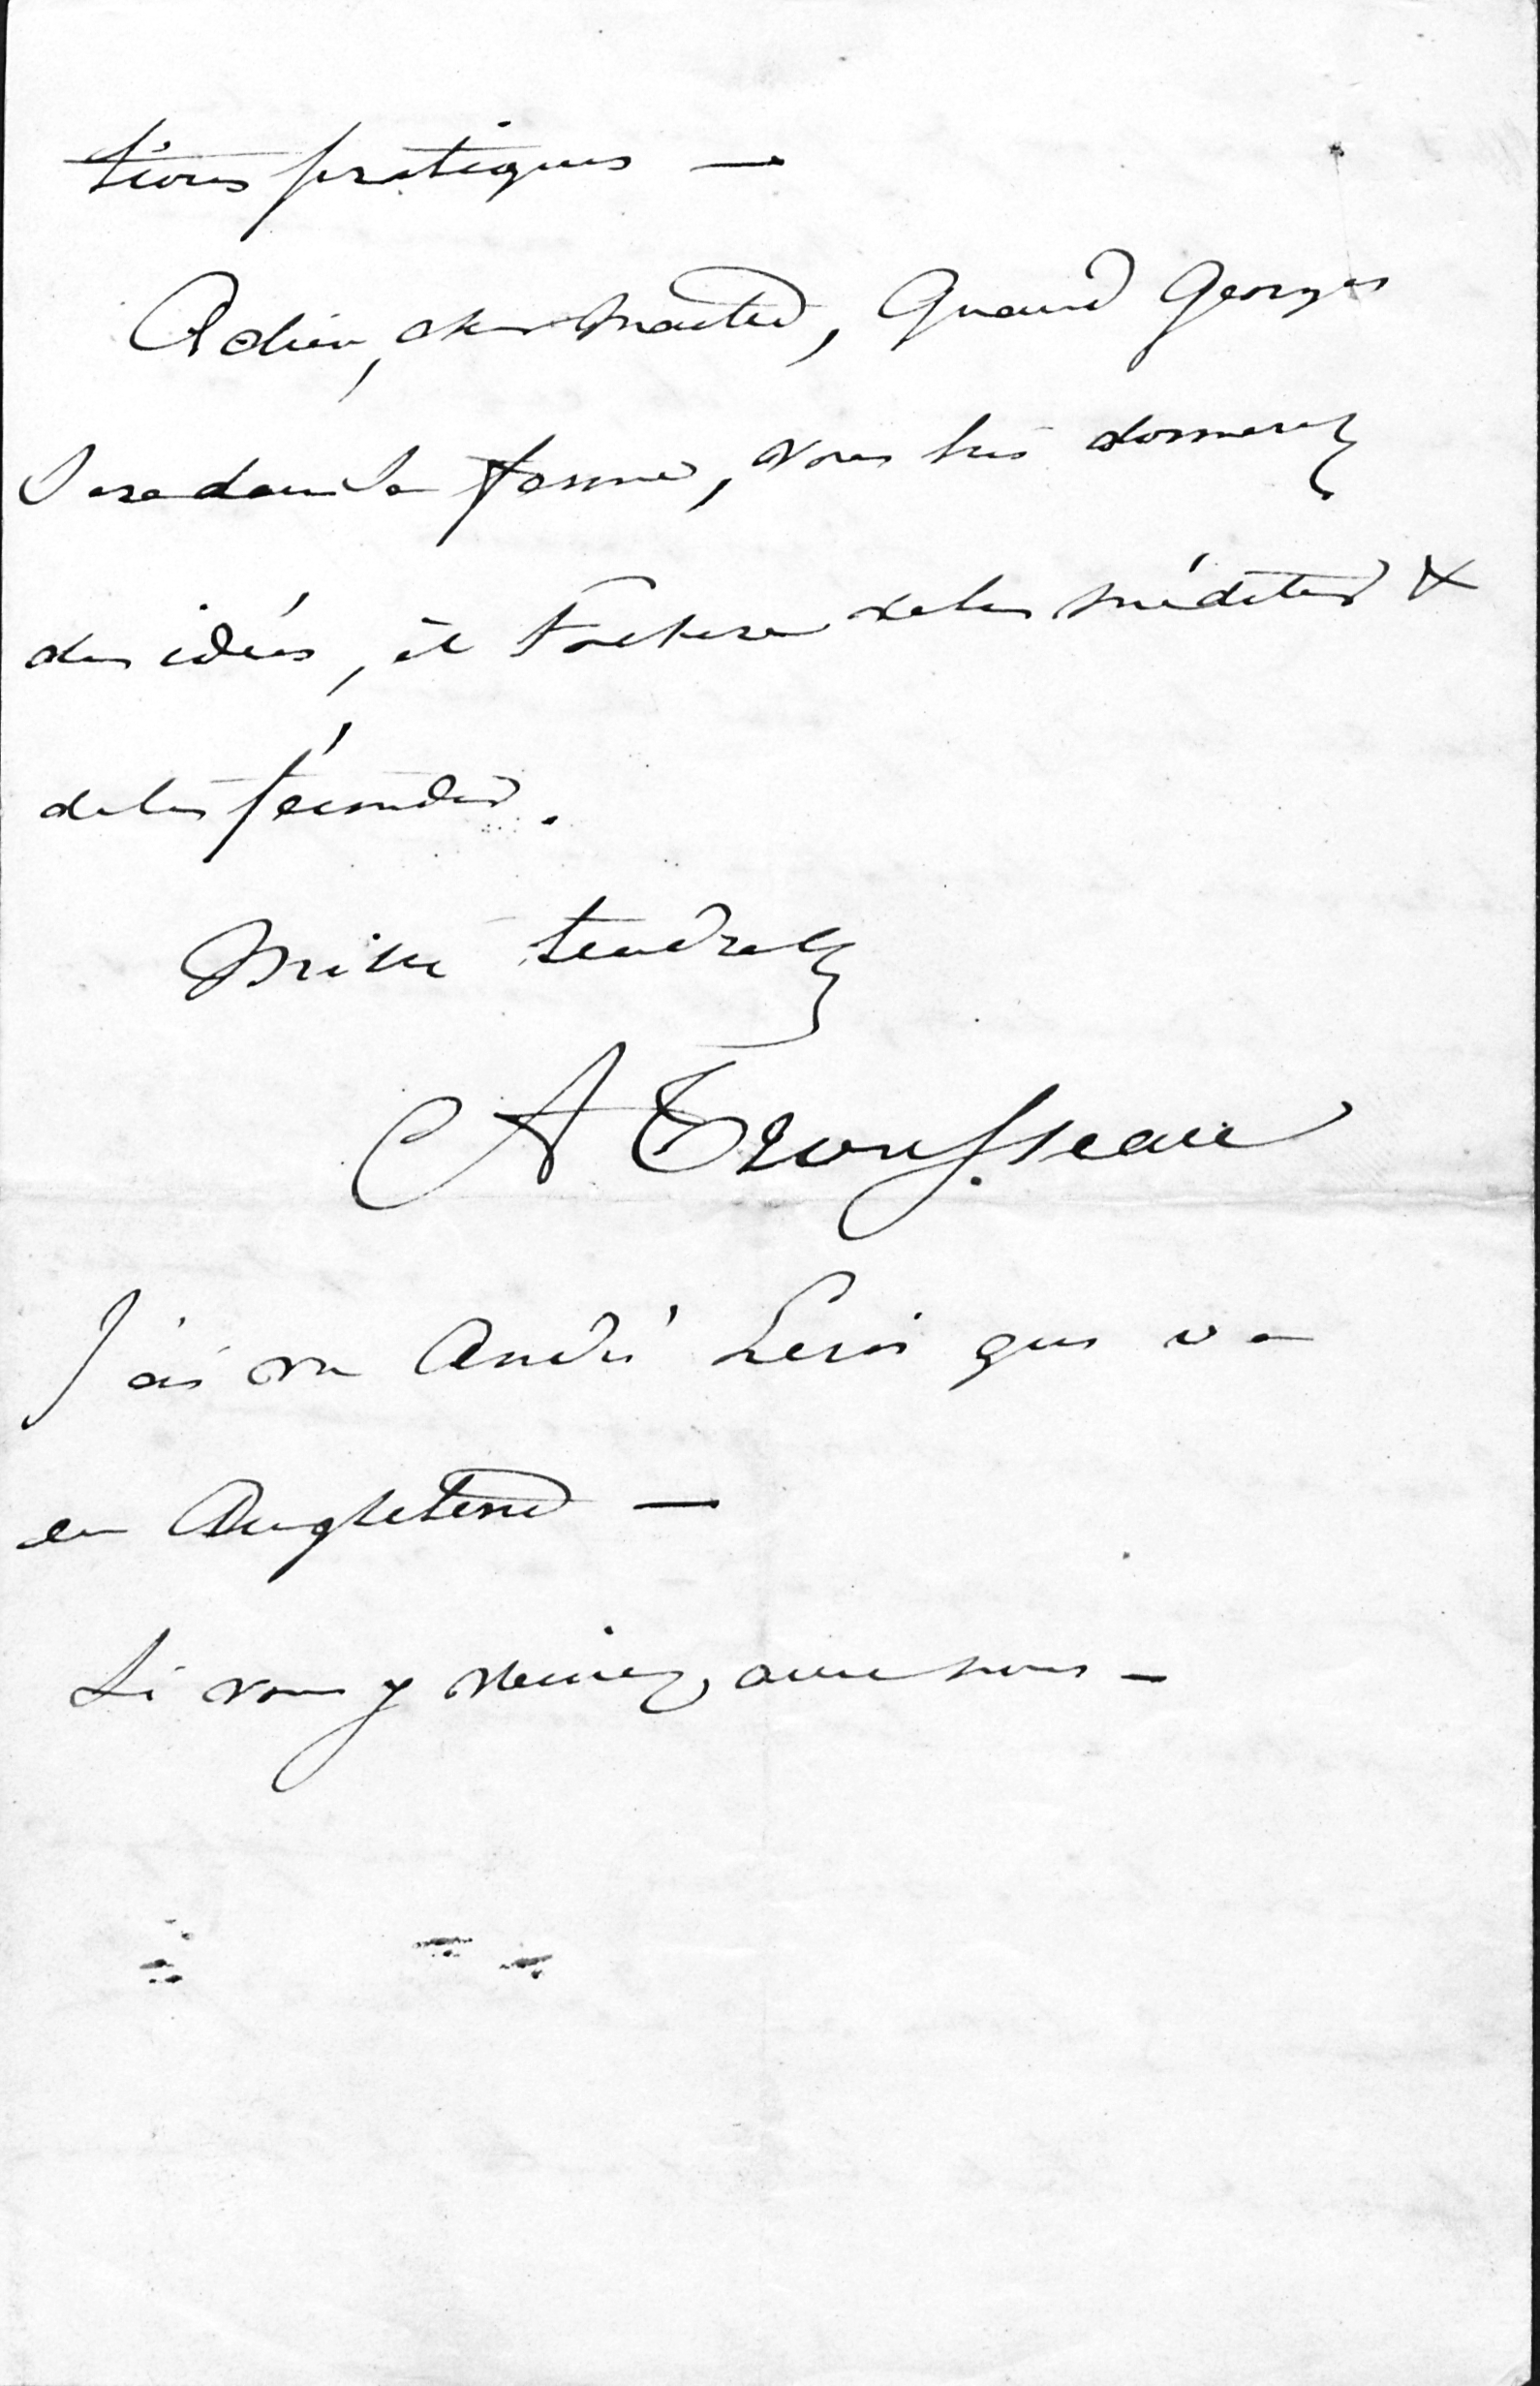 tions pratiques —
Adieu, cher maître, Quand Georges
Sera dans la ferme, vous lui donnerez
des idées, il tachera de les méditer &
de les féconder.
Mille tendresses
A Trousseau
J'ai vu André Leroi qui va
en Angleterre —
Si vous y veniez avec nous —